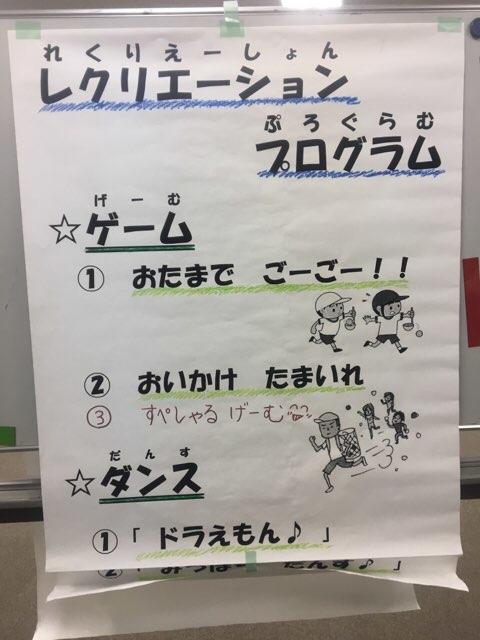 れくりえーしょん
レクリエーション
ぷろぐらむ
プログラム
げーむ
☆ゲーム
① おたまで ごーごー!!
② おいかけ たまいれ
③ すぺしゃる げーむ
だんす
☆ダンス
①「 ドラえもん♪ 」